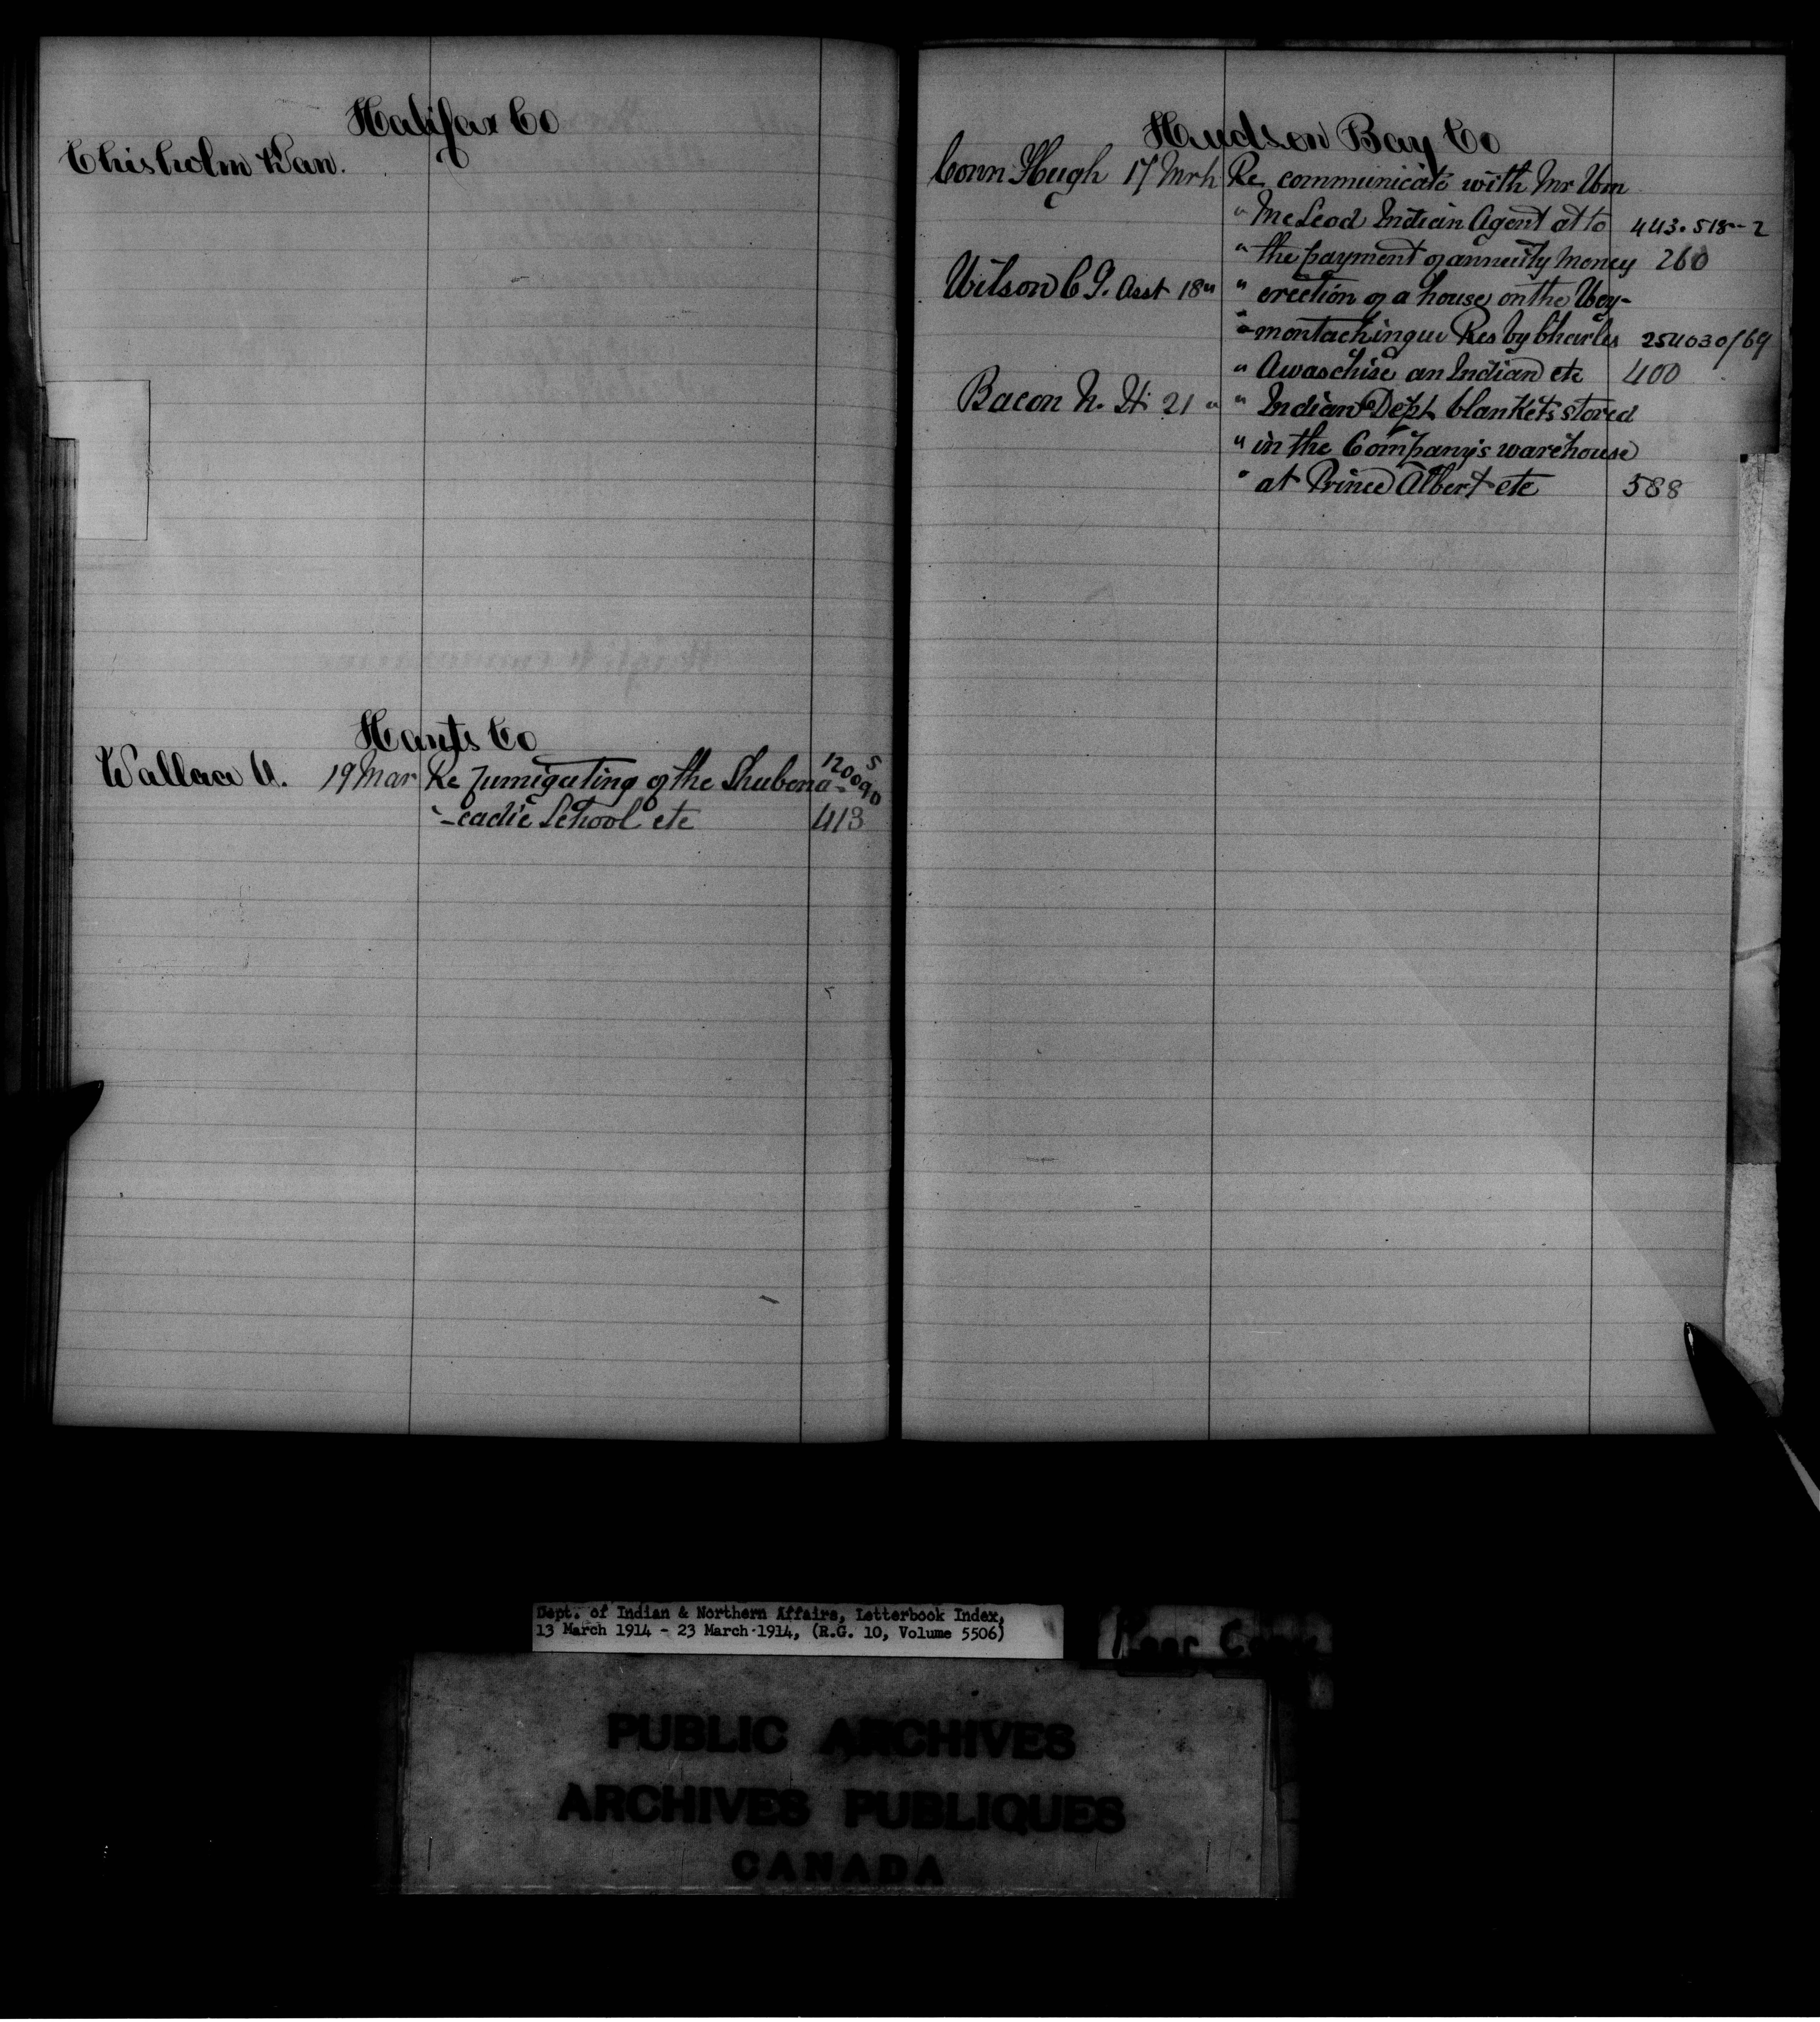 Halifax Co
Chisholm Dan.
Hants Co
Wallace A. 19 Mar Re fumigating of the Shubena- 120090 5
" -cadie School etc 413
Hudson Bay Co
Conn Hugh 17 Mrh Re communicate with Mr Wm
" McLeod Indian Agent at to 443.518--2
" the payment of annuity money 260
Wilson C G. Asst 18 " " erection of a house on the Wey-
" -montachingue Res by Charles 254030/69
" Awaschise an Indian etc 400
Bacon N. H. 21 " " Indian Dept blankets stored
" in the Company's warehouse
" at Prince Albert etc 588
Dept. of Indian & Northern Affairs, Letterbook Index,
13 March 1914 - 23 March 1914, (R.G. 10, Volume 5506)
Poor Copy
PUBLIC ARCHIVES
ARCHIVES PUBLIQUES
CANADA